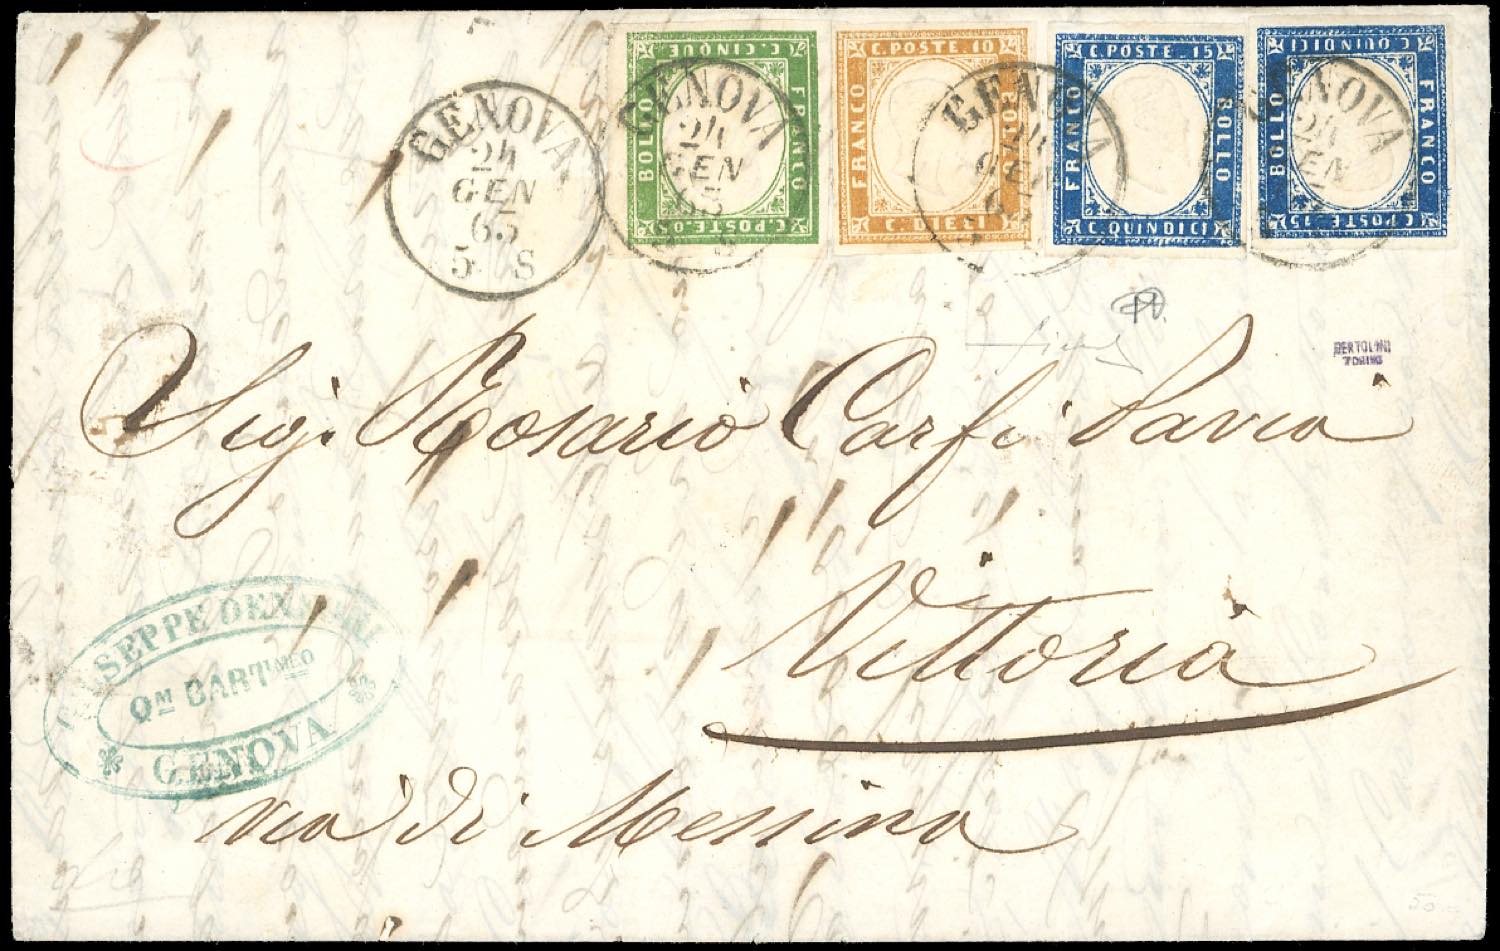 GENOVA
24
GEN
63
5 S
GENOVA
24
GEN
63
C. CINQUE
BOLLO
FRANCO
C. POSTE. 05
C. POSTE. 10
FRANCO
BOLLO
C. DIECI
GENOVA
24
GEN
63
C. POSTE. 15
FRANCO
BOLLO
C. QUINDICI
C. QUINDICI
BOLLO
FRANCO
C. POSTE. 15
GENOVA
24
GEN
BERTOLINI
TORINO
Sig. Rosario Carfi Pavia
Vittoria
GIUSEPPE
QM BARTIMEO
GENOVA
via di Messina